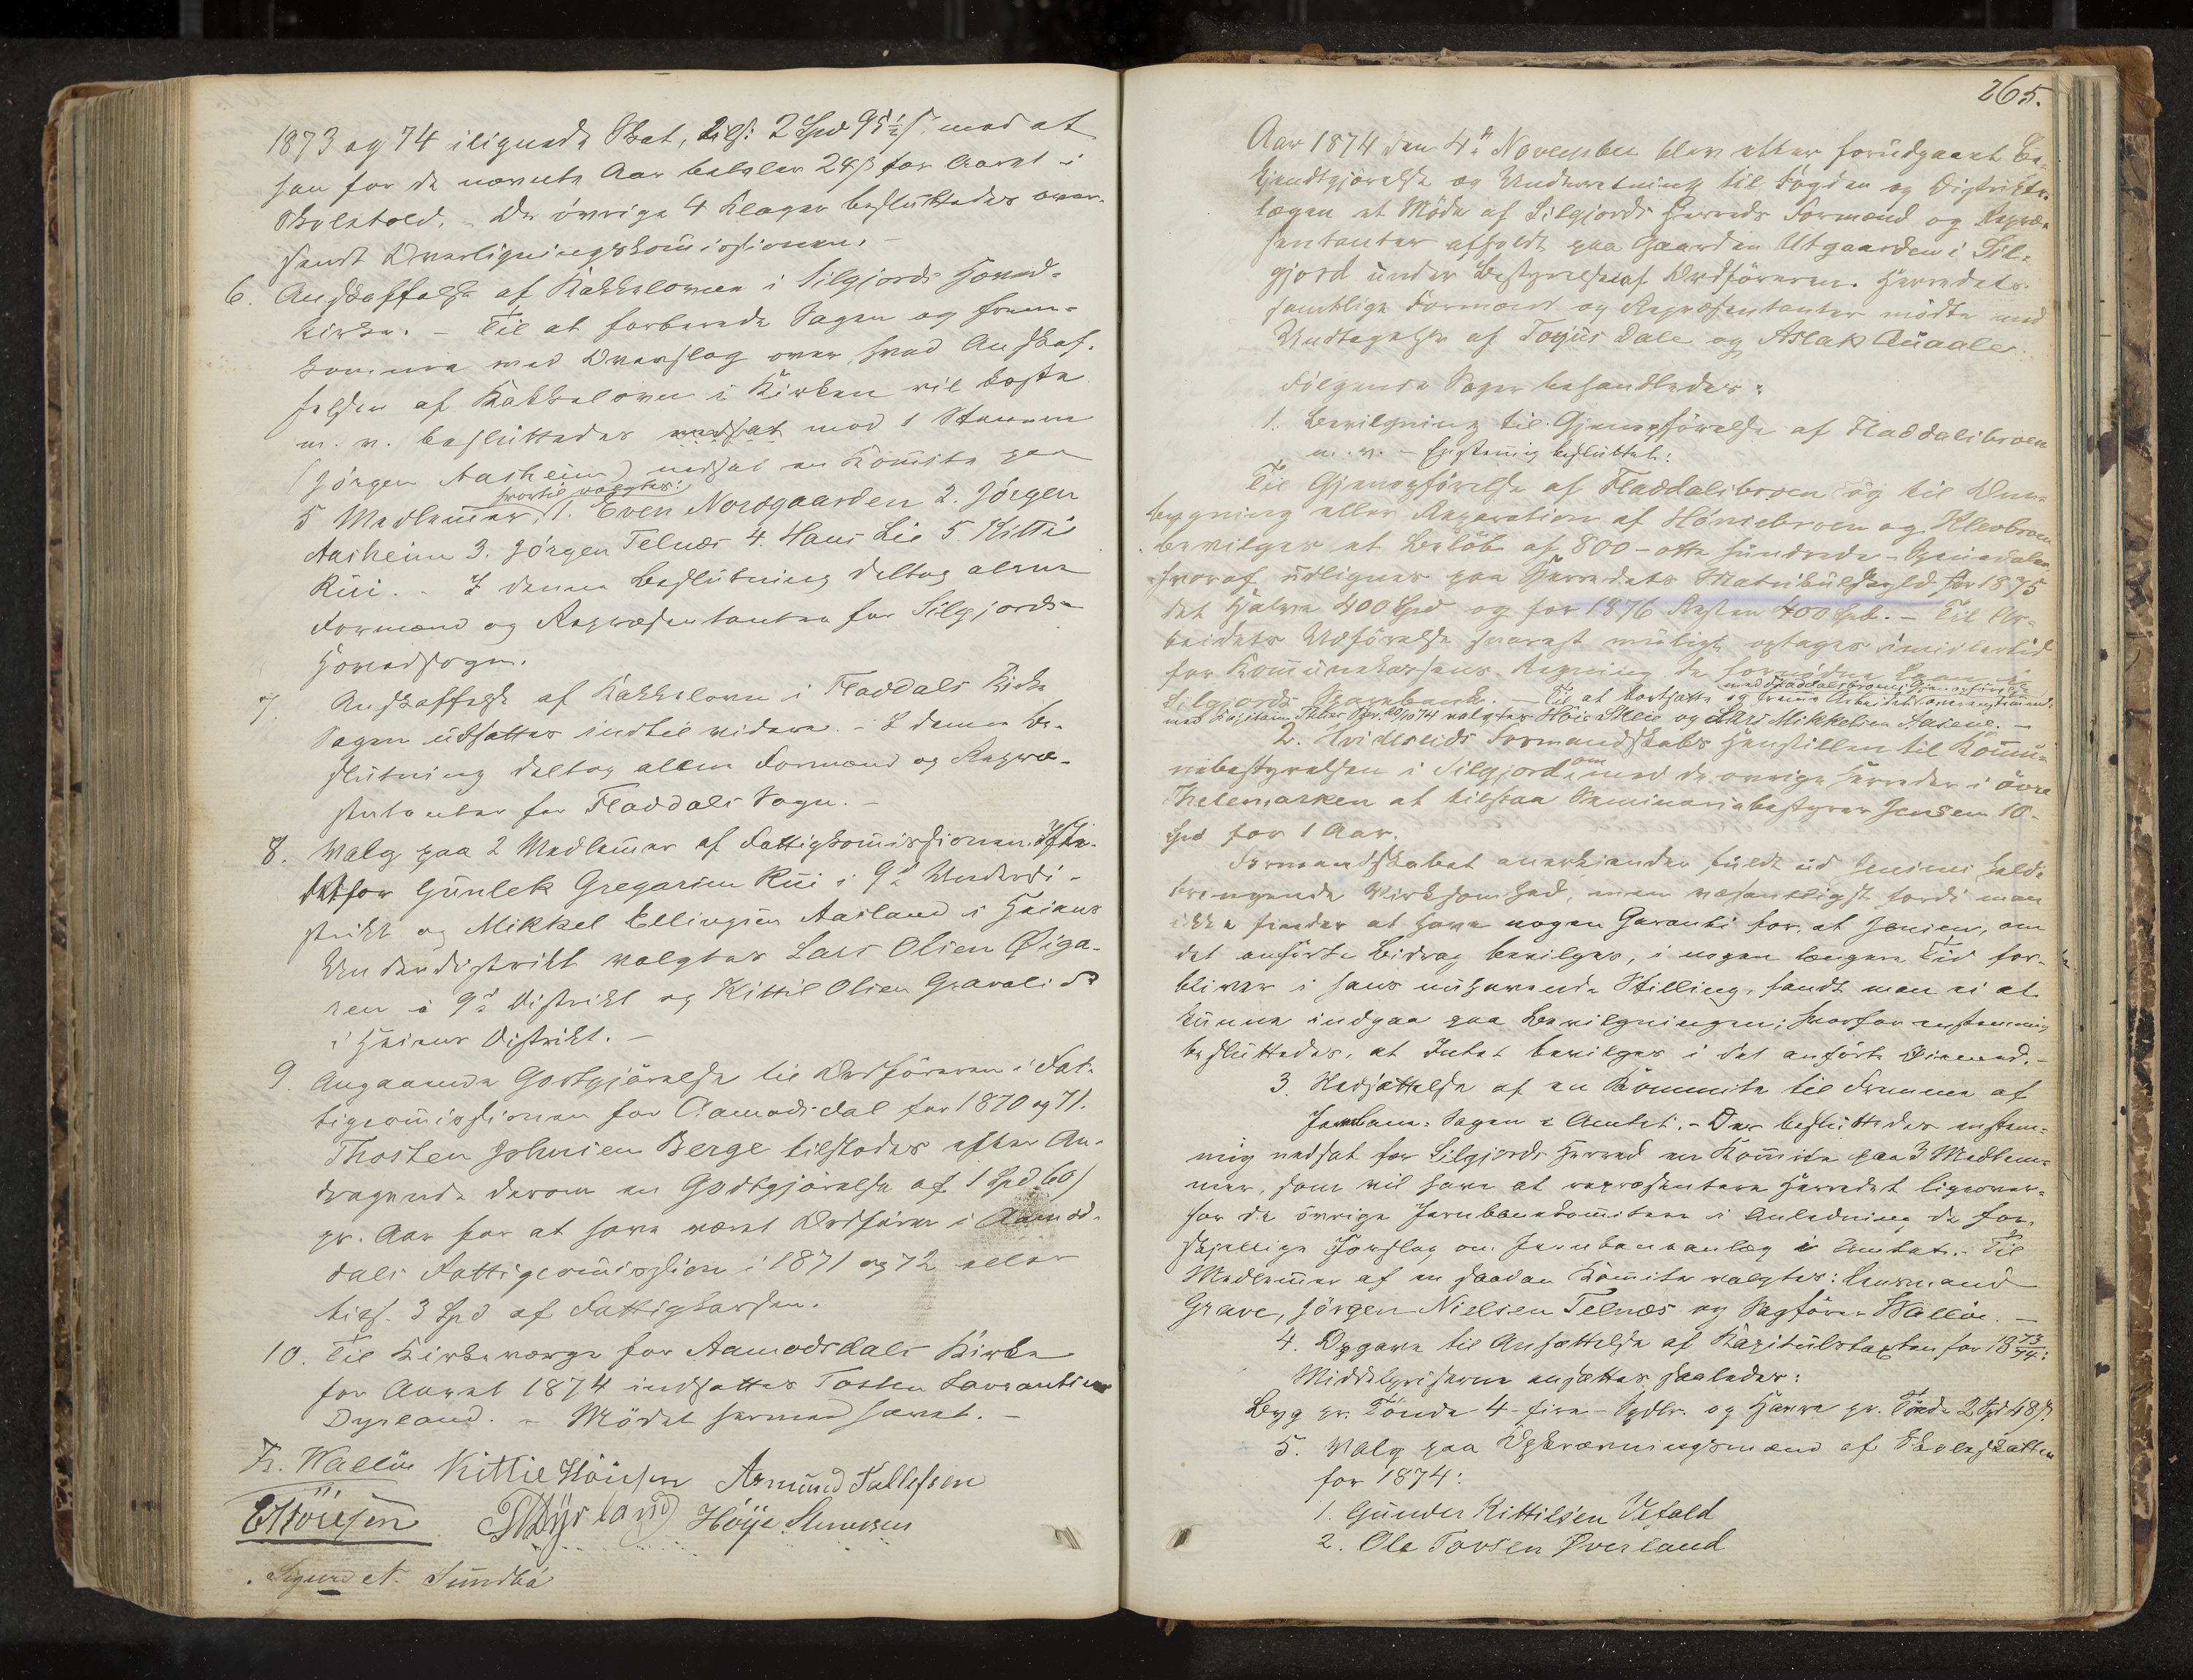 1873 og 74 ilignede Skat, tils: 2 Spd 95½ ß. mod at
han for de nævnte Aar betaler 24 ß for Aaret i
Skoletold. – De övrige 4 Klager besluttedes over-
sendt Overligningskomissionen. –
6. Anskaffelse af Kakkelovne i Silgjords Hoved-
kirke. – Til at forberede Sagen og frem-
komme med Overslag over, hvad Anskaf-
felsen af Kakkelovne i Kirken vil koste
m. v. besluttedes mod 1 Stemme
(Jörgen Aasheim) nedsat en Komite paa
hvortil valgtes:
5 Medlemmer, 1. Even Norsgaarden 2. Jörgen
Aasheim 3. Jörgen Telnæs 4. Hans Lie 5. Kittil
Rui. – I denne Beslutning deltog alene
Formænd og Repræsentanter for Silgjords
Hovedsogn.
7. Anskaffelse af Kakkelovne i Fladdals Kirke
Sagen udsættes indtil videre. – I denne Be-
slutning deltog allene Formænd og Repræ-
sentanter for Fladdals Sogn. –
8. Valg paa 2 Medlemmer af Fattigkomissionen. Iste-
detfor Gunlek Gregarsen Rui i 9de Underdi-
strikt og Mikkel Ellingsen Aasland i
Underdistrikt valgtes Lars Olsen Øiga-
ren i 9de Distrikt og Kittil Olsen Gravalid
i Distrikt. –
9. Angaaende Godtgjörelse til Ordföreren i Fat-
tigcomissionen for Aamodsdal for 1870 og 71.
Thosten Johnsen Berge tilstodes efter An-
dragende derom en Godtgjörelse af 1 Spd 60 ß
pr. Aar for at have været Ordförer i Aamods-
dals Fattigcomission i 1871 og 72 eller
tils. 3 Spd af Fattigkassen.
10. Til Kirkeværge for Aamodsdals Kirke
for Aaret 1874 indsattes Tosten Lavrantsen
Dyrland. – Mödet hermed hævet. –
Fr. Wallöe Kittil Höiesen Asmund Tallefsen
EHöiesen TDyrland Höije
Sigurd A. Sundbö
265.
Aar 1874 den 4de November blev efter forudgaaet Be-
kjendtgjörelse og Underretning til Fogden og Distrikts-
lægen et Möde af Silgjords Herreds Formænd og Repræ-
sentanter afholdt paa Gaarden Utgaarden i Sil-
gjord under Bestyrelse af Ordföreren. Herredets
samtlige Formænd og Repræsentanter mödte med
Undtagelse af Tarjus Dale og Aslak Aaudle.
Fölgende Sager behandledes:
1. Bevilgning til Gjenopförelse af Fladdalsbroen
m. v. – Enstemig besluttet:
Til Gjenopförelse af Fladdalsbroen og til Om-
bygning eller Reparation af Hönsebroen og Klevbroen
bevilges et Belöb af 800 – otte hundrede – Speciedaler
hvoraf udlignes paa Herredets Matrikulskyld for 1875
det Halve 400 Spd og for 1876 Resten 400 Spd. – Til Ar-
beidets Udförelse snarest muligt optages imidlertid
for Komunekassens Regning de fornödne
med Fladdalsbroens Gjenopförelse
Silgjords Sparebank. – Til at bortsætte og Arbeidet i overensstemmelse
med valgtes Höie Skeie og Lars Mikkelsen Aasene. –
2. Hvideseids Formandskabs Henstillen til Komu-
nebestyrelsen i Silgjord om med de övrige Herreder i övre
Thelemarken at tilstaa Seminariebestyrer Jensen 10
Spd for 1 Aar.
Formandskabet anerkjender fuldt ud Jensens held-
bringende Virksomhed, men væsentligst fordi man
ikke finder at have nogen Garanti for, at Jensen, om
det anförte Bidrag bevilges, i nogen længere Tid for-
bliver i hans nuhavende Stilling, fandt man ei at
kunne indgaa paa Bevilgningen; hvorfor enstemmig
besluttedes, at Intet bevilges i det anförte Öiemed. –
3. Nedsættelse af en Kommite til Fremme af
Jernbane-Sagen i Amtet. – Der besluttedes enstem-
mig nedsat for Silgjords Herred en Komite paa 3 Medlem-
mer, som vil have at repræsentere Herredet ligeover-
for de övrige Jernbanekomiteer i Anledning de for-
skjellige Forslag om Jernbaneanlæg i Amtet. – Til
Medlemmer af en saadan Komite valgtes: Lensmand
Grave, Jörgen Nielsen Telnæs og Sagförer Wallöe. –
4. Opgave til Ansættelse af Kapitulstaxten for 1873/74:
Middelpriserne ansættes saaledes:
Byg pr. Tönde 4 – fire – Spdlr. og Havre pr. Tönde 2 Spd 48 ß.
5. Valg paa Opkrævningsmænd af Skoleskatten
for 1874:
1. Gunder Kittilsen Vefald
2. Ole Tovsen Øverland